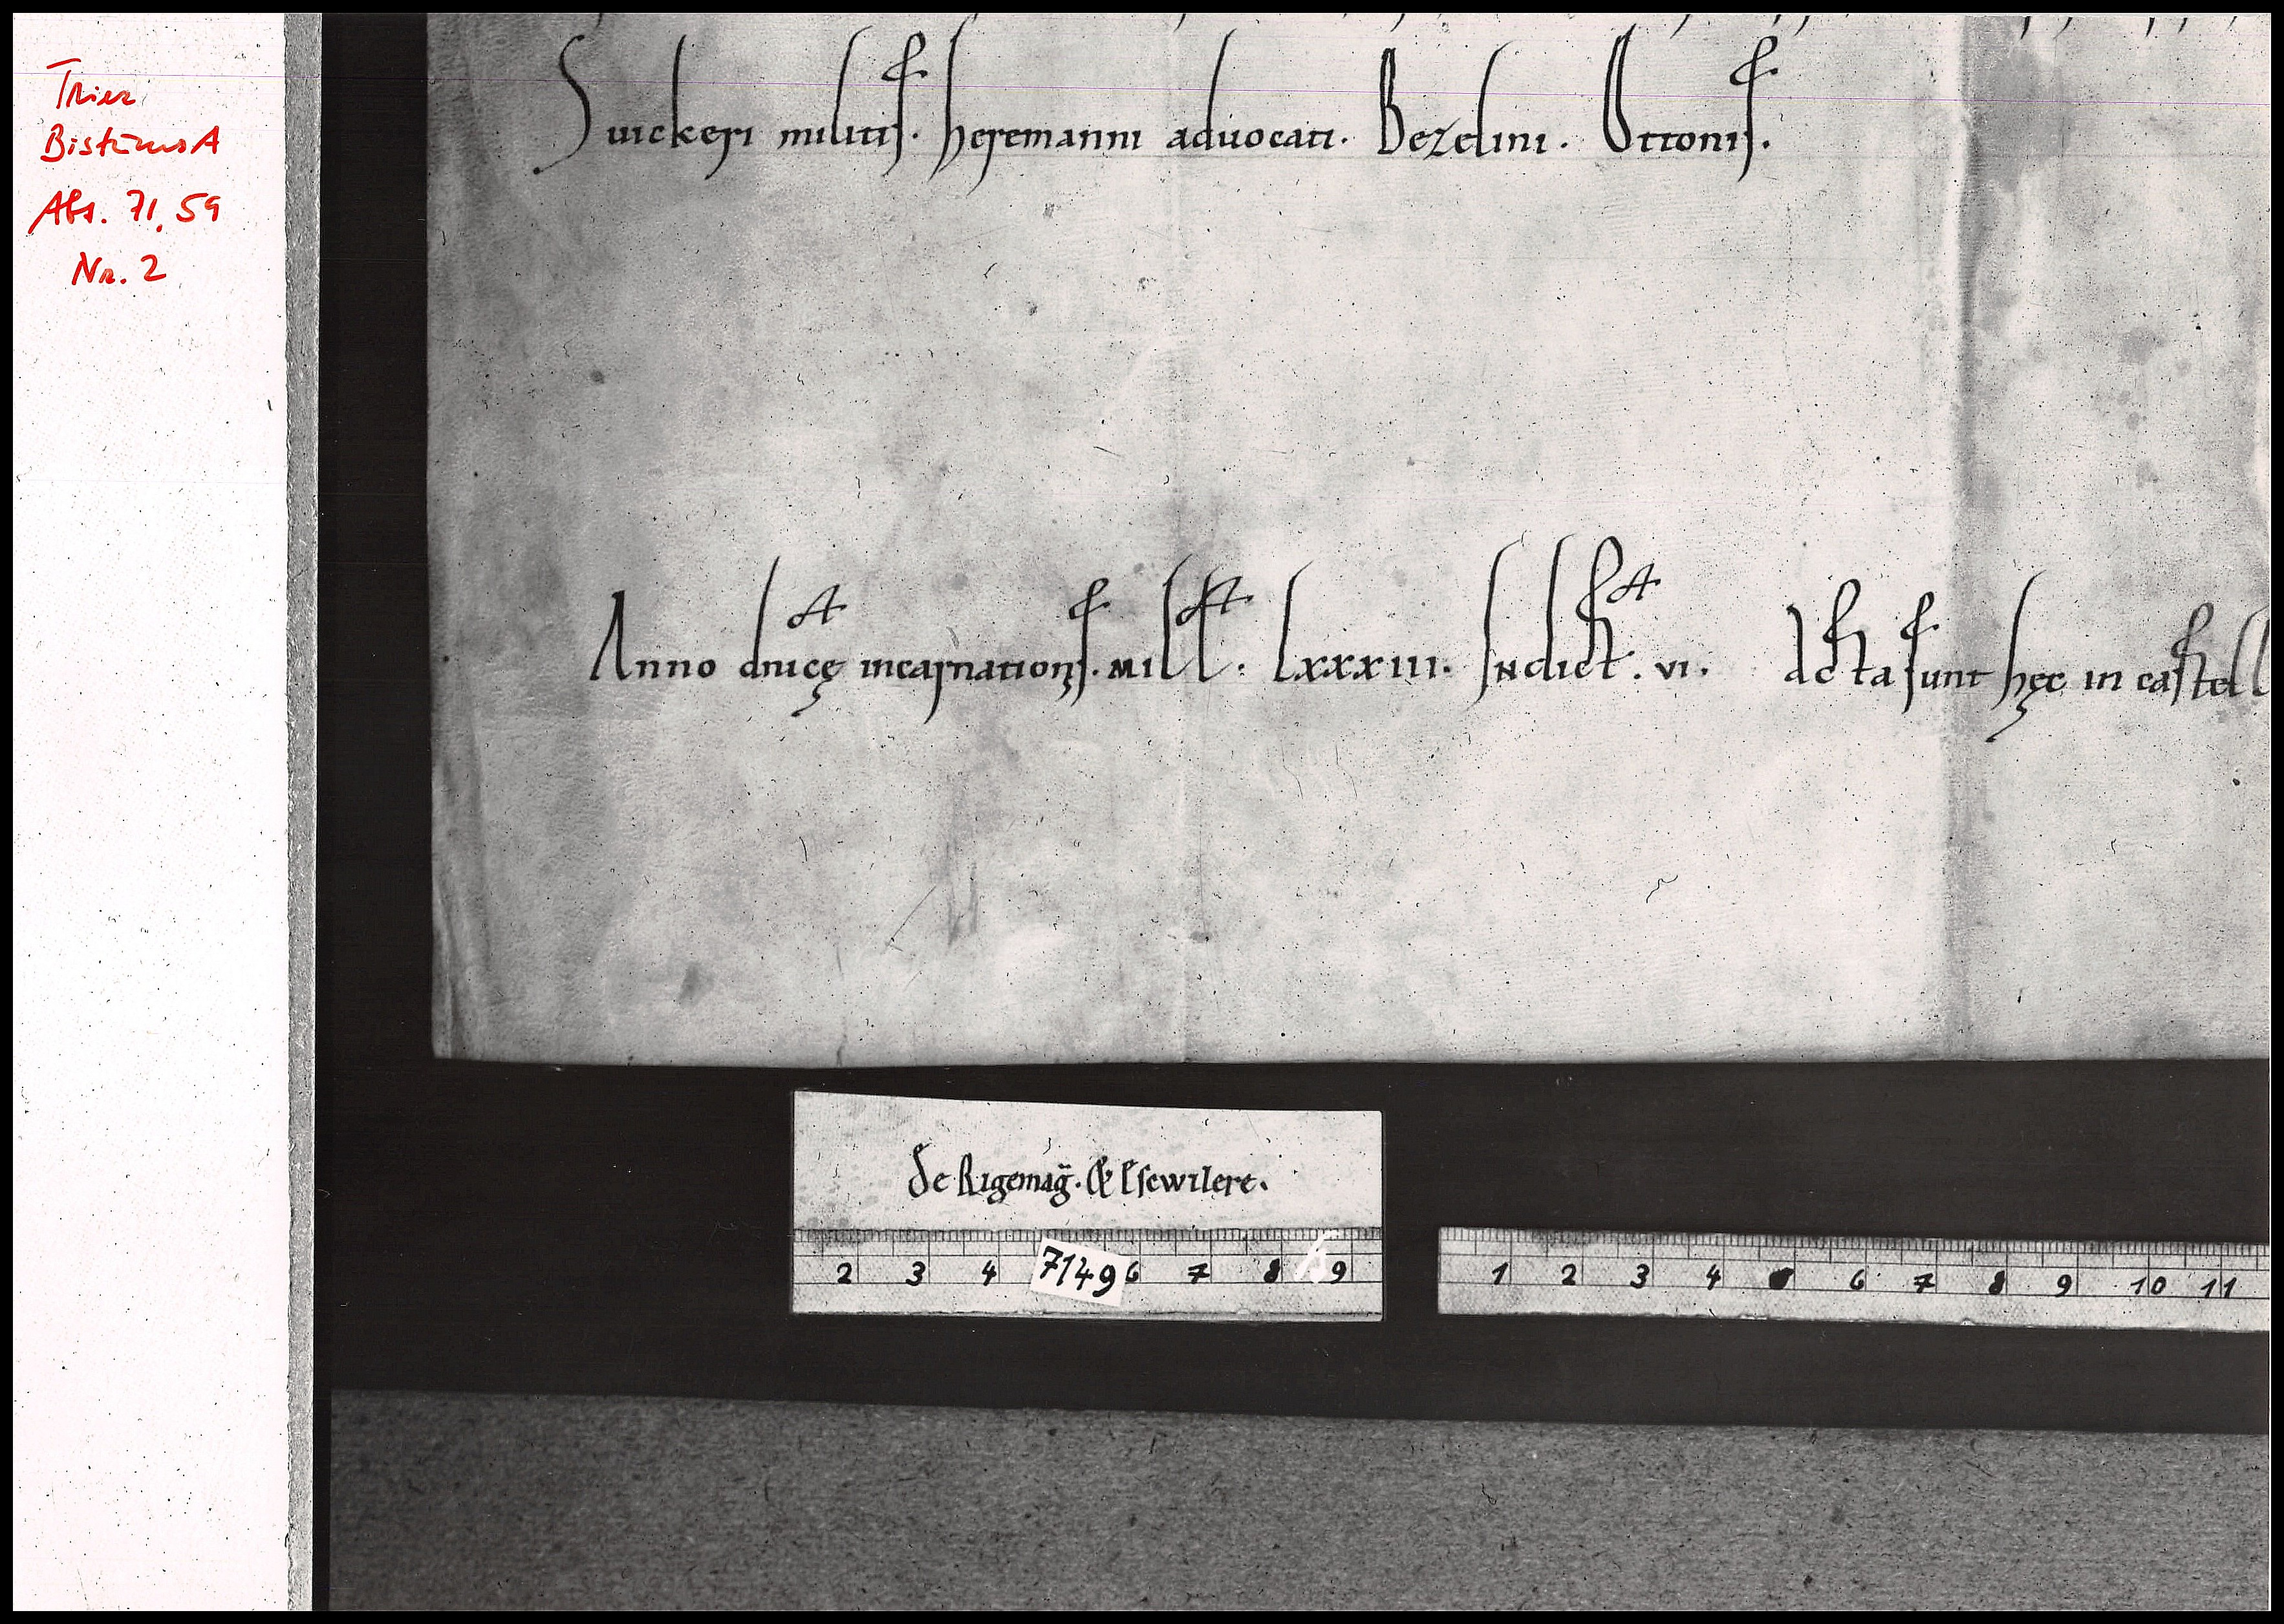 Trier
BistumsA
Abt. 71,59
Nr. 2
Suickeri militis. heremanni aduocati. Bezelini. Ottonis.
Anno dnicę incarnationis. MILL. LXXXIII. Indict. VI. Acta sunt hęc in castell
de Rigemag. & Escwilere.
2 3 4 7149 6 7 8 9
1 2 3 4 6 7 8 9 10 11